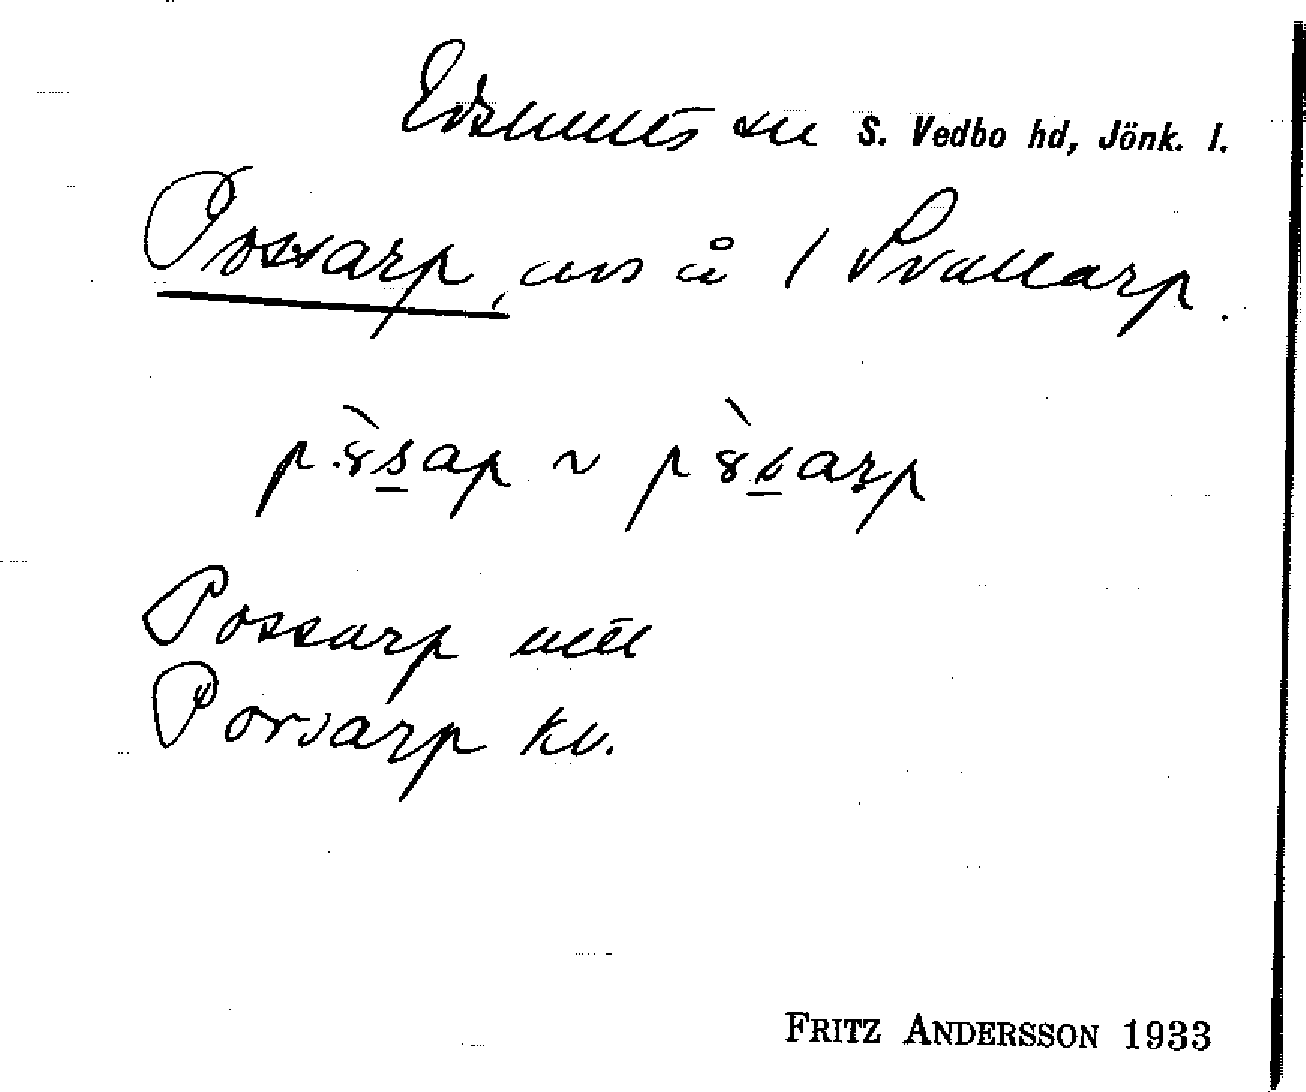 Edshults sn S. Vedbo hd, Jönk. l.
Possarp, avs å 1 Prallarp.
pòsap ~ pòsarp
Possarp
Porsarp kv.
FRITZ ANDERSSON 1933